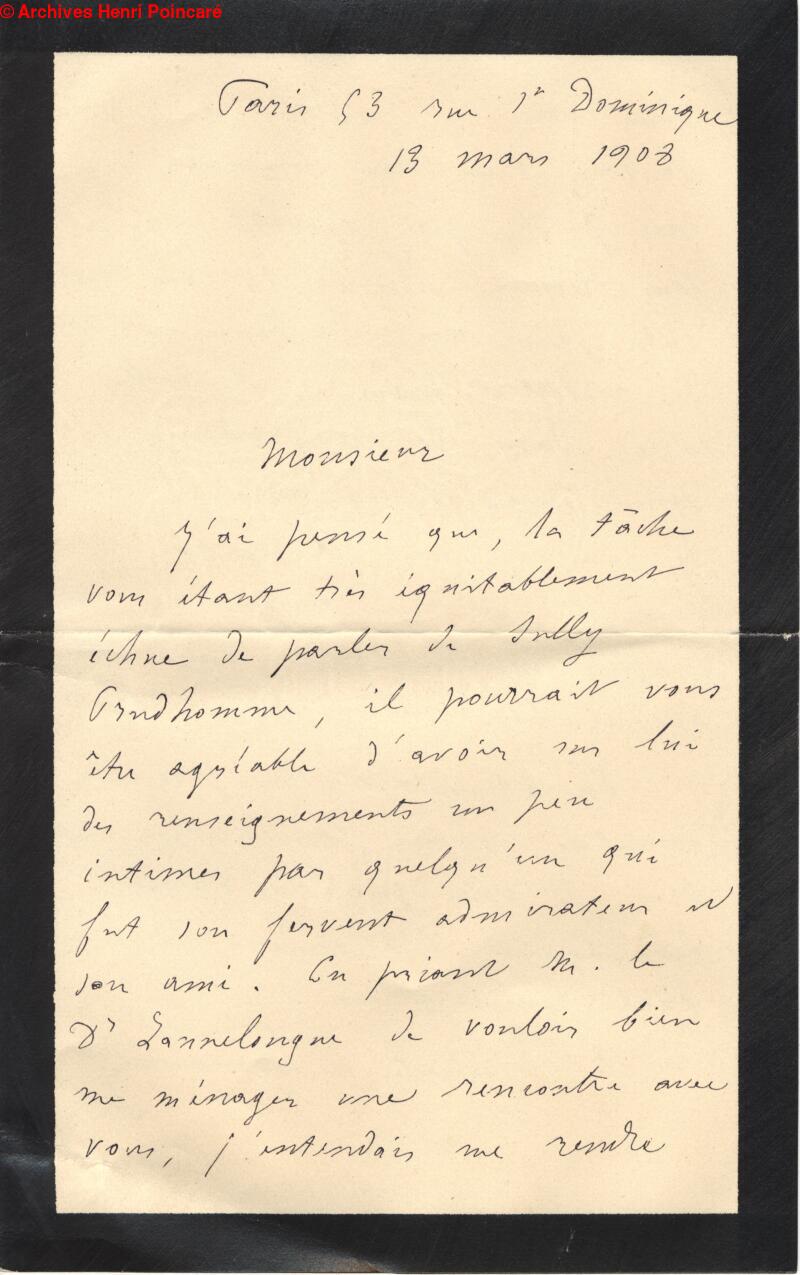 © Archives Henri Poincaré
Paris 53 rue St Dominique
13 mars 1908
Monsieur
J'ai pensé que, la tâche
vous étant très équitablement
échue de parler de Sully
Prudhomme, il pourrait vous
être agréable d'avoir sur lui
des renseignements un peu
intimes par quelqu'un qui
fut son fervent admirateur et
son ami. En priant M. le
Dr Lannelongue de vouloir bien
me ménager une rencontre avec
vous, j'entendais me rendre